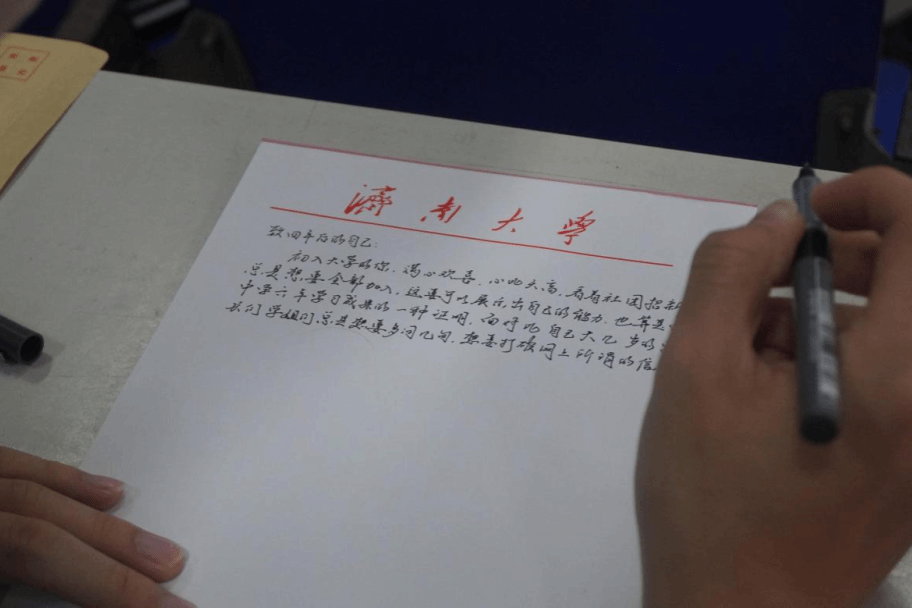 濟南大學
致四年后的自己:
初入大学的你,满心欢喜,心比天高,看着社团招新
总是想要全部加入,这要可以展示出自己的能力,也算是
中学六年学习成果的一种证明,面对比自己大几岁的
长们学姐们总是想要多问几句,想要打破网上所谓的信